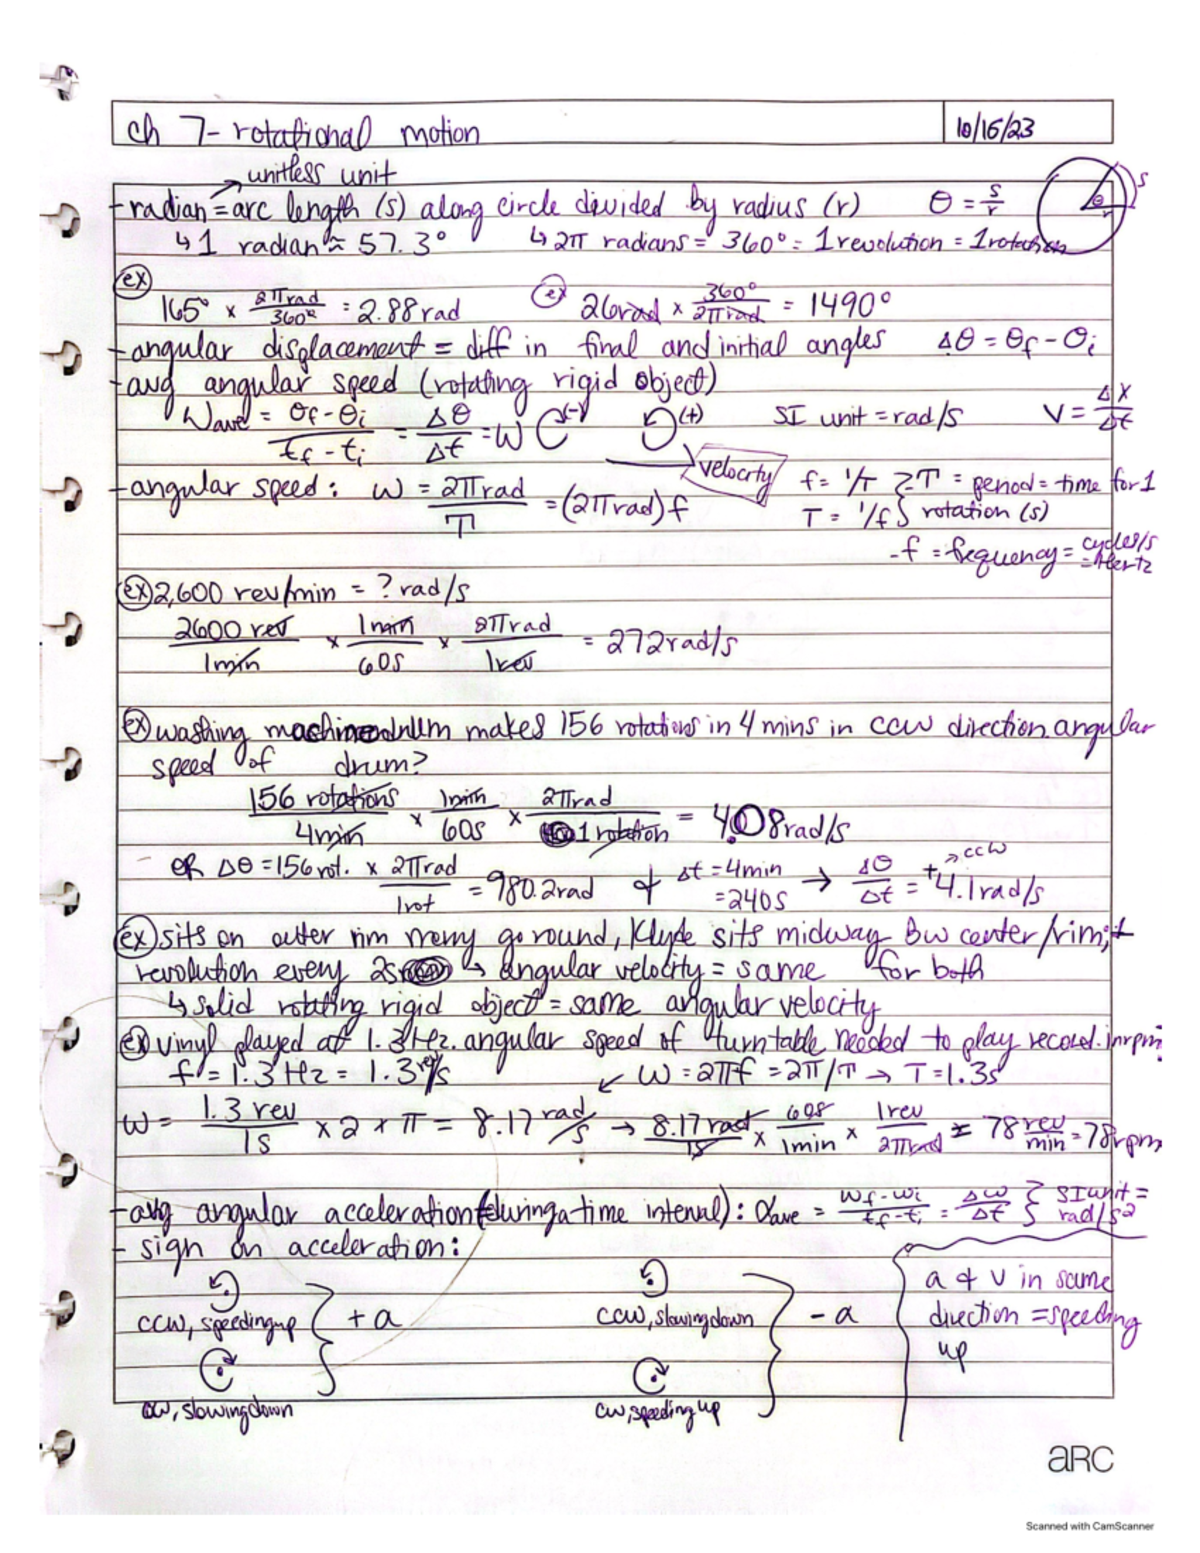 ch 7- rotational motion 10/16/23
→ unitless unit
- radian = arc length (s) along circle divided by radius (r) θ = s/r
↳ 1 radian ≈ 57.3° ↳ 2π radians = 360° = 1 revolution = 1 rotation
s
θ
r
(ex) 165° × 2πrad/360° = 2.88 rad (ex) 26rad × 360°/2πrad = 1490°
- angular displacement = diff in final and initial angles Δθ = θf - θi
- avg angular speed (rotating rigid object)
Wave = θf-θi/tf-ti = Δθ/Δt = ω (-) (+) SI unit = rad/s V = ΔX/Δt
velocity
- angular speed: ω = 2πrad/T = (2πrad)f f = 1/T } T = period = time for 1
T = 1/f } rotation (s)
- f = frequency = cycles/s
= Hertz
(ex) 2,600 rev/min = ? rad/s
2600 rev/1min × 1min/60s × 2πrad/1rev = 272rad/s
(ex) washing machine drum makes 156 rotations in 4 mins in ccw direction. angular
speed of drum?
156 rotations/4min × 1min/60s × 2πrad/1 rotation = 4.08rad/s
OR Δθ = 156 rot. × 2πrad/1rot = 980.2rad & Δt = 4min = 240s → Δθ/Δt = +4.1rad/s → ccw
(ex) sits on outer rim merry go round, Klyde sits midway Bw center/rim;
revolution every 2s → angular velocity = same for both
↳ solid rotating rigid object = same angular velocity
(ex) vinyl played at 1.3Hz. angular speed of turntable needed to play record. in rpm?
f = 1.3Hz = 1.3rev/s ↙ ω = 2πf = 2π/T → T = 1.3s
ω = 1.3 rev/1s × 2 × π = 8.17 rad/s → 8.17 rad/1s × 60s/1min × 1rev/2πrad = 78 rev/min = 78rpm
- avg angular acceleration (during a time interval): αave = ωf-ωi/tf-ti = Δω/Δt } SI unit = rad/s²
- sign on acceleration:
ccw, speeding up } + a
cw, slowing down
ccw, slowing down } - a
cw, speeding up
a & v in same
direction = speeding
up
aRC
Scanned with CamScanner